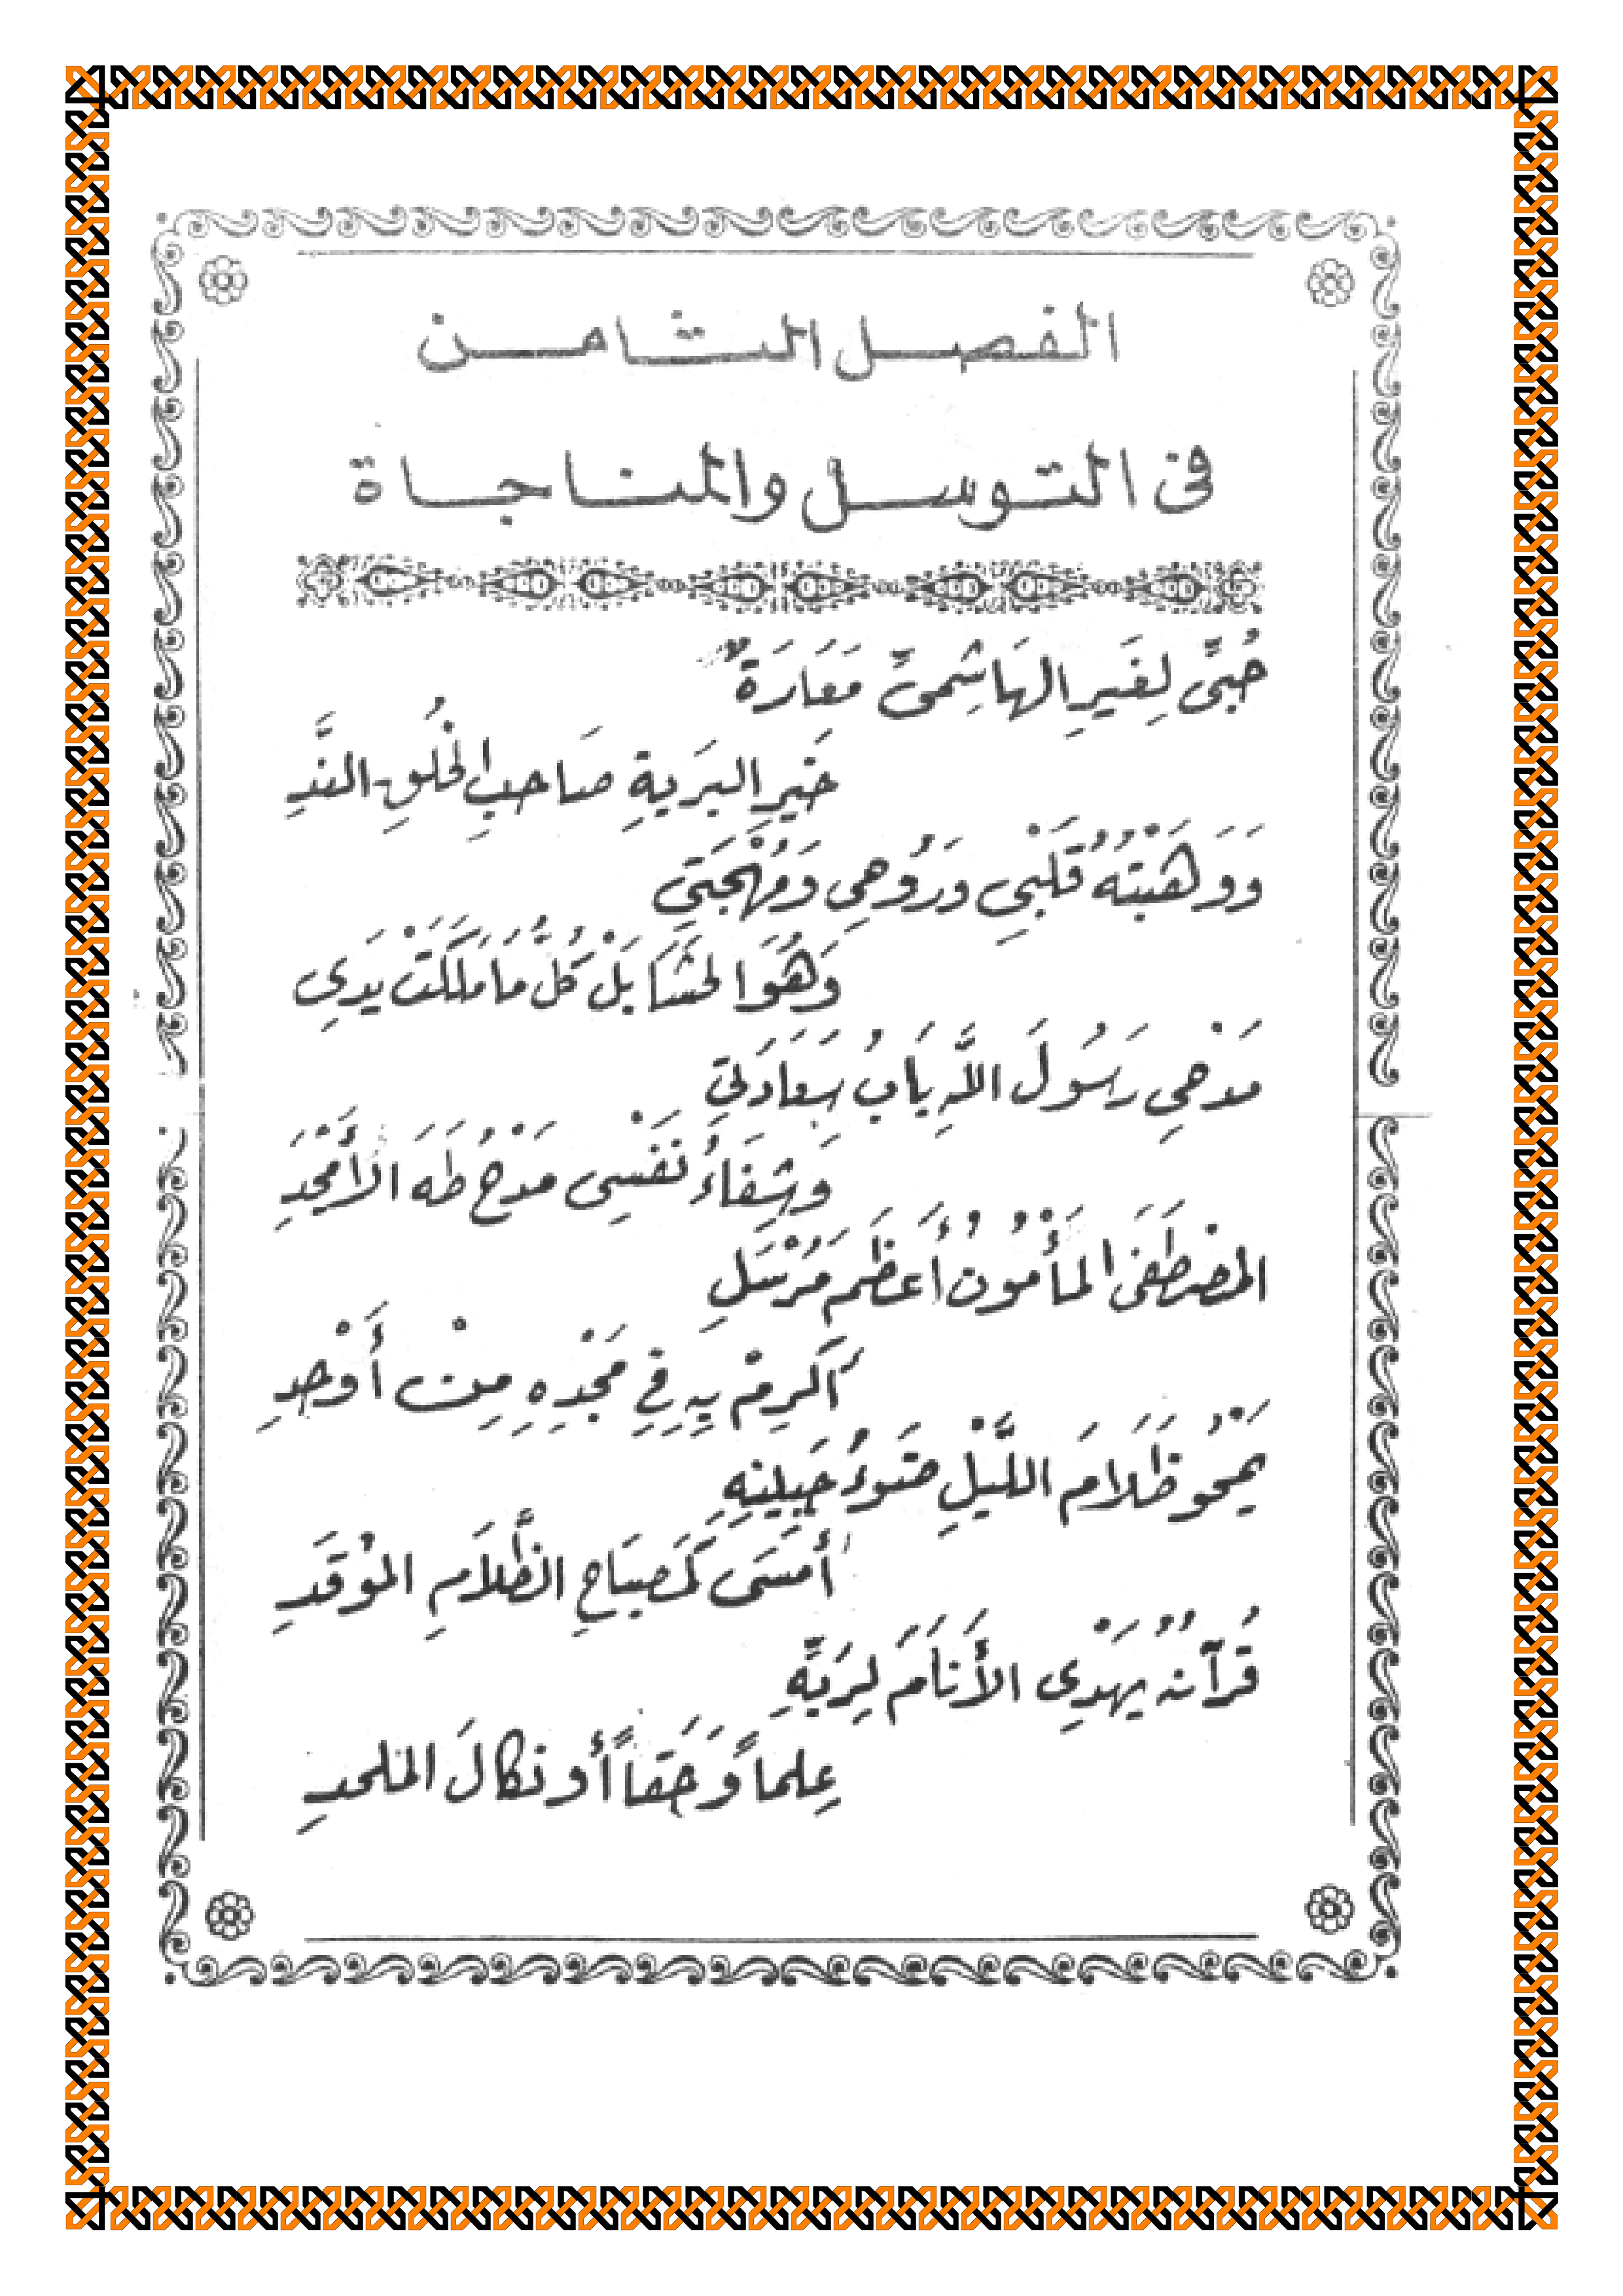 الفصل الثامن
فى التوسل والمناجاة
حُبِّى لِغَيرِ الهَاشِمىِّ مَعَارَةٌ
خَيرِ البَرَيةِ صَاحبِ الخُلقِ النَّدِ
وَوَهَبْتُهُ قَلْبِى وَرُوُحِى وَمُهْجَتِى
وَهُوَ الحَشَا بَلْ كُلُّ مَا مَلَكَتْ يَدِى
مَدْحِى رَسُولَ اللَّهِ بَابُ سَعَادَتِى
وَشِفَاءُ نَفْسِى مَدْحُ طَهَ الأَمْجَدِ
المصْطَفَى المَأْمُونُ أَعظَم مُرْسَلِ
أَكرِمْ بِهِ فِى مَجْدِهِ مِنْ أَوْحِدِ
يَمْحُو ظَلَامَ اللَّيْلِ ضَوءُ جَبِينِهِ
أَمسَى كَمَصبَاحِ الظَّلَامِ الموْقَدِ
قُرآنُهُ يَهْدِى الأَنَامَ لِرَبِّهِ
عِلماً وَحَقاً أو نكالَ الملحدِ